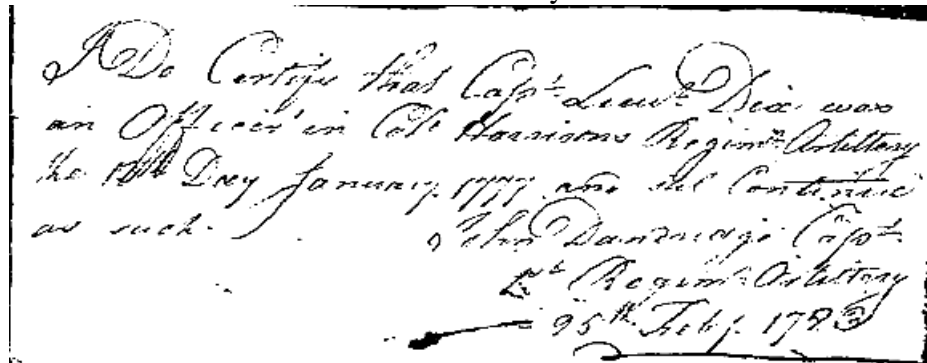 I Do Certify that Capt. Lieut. Dix was
an Officer in Colo Harrisons Regimt. Artillery
the Day January 1777 and stil Continue
as such.
John Dandridge Capt.
Regimt. Artillery
25th. Feby. 1783